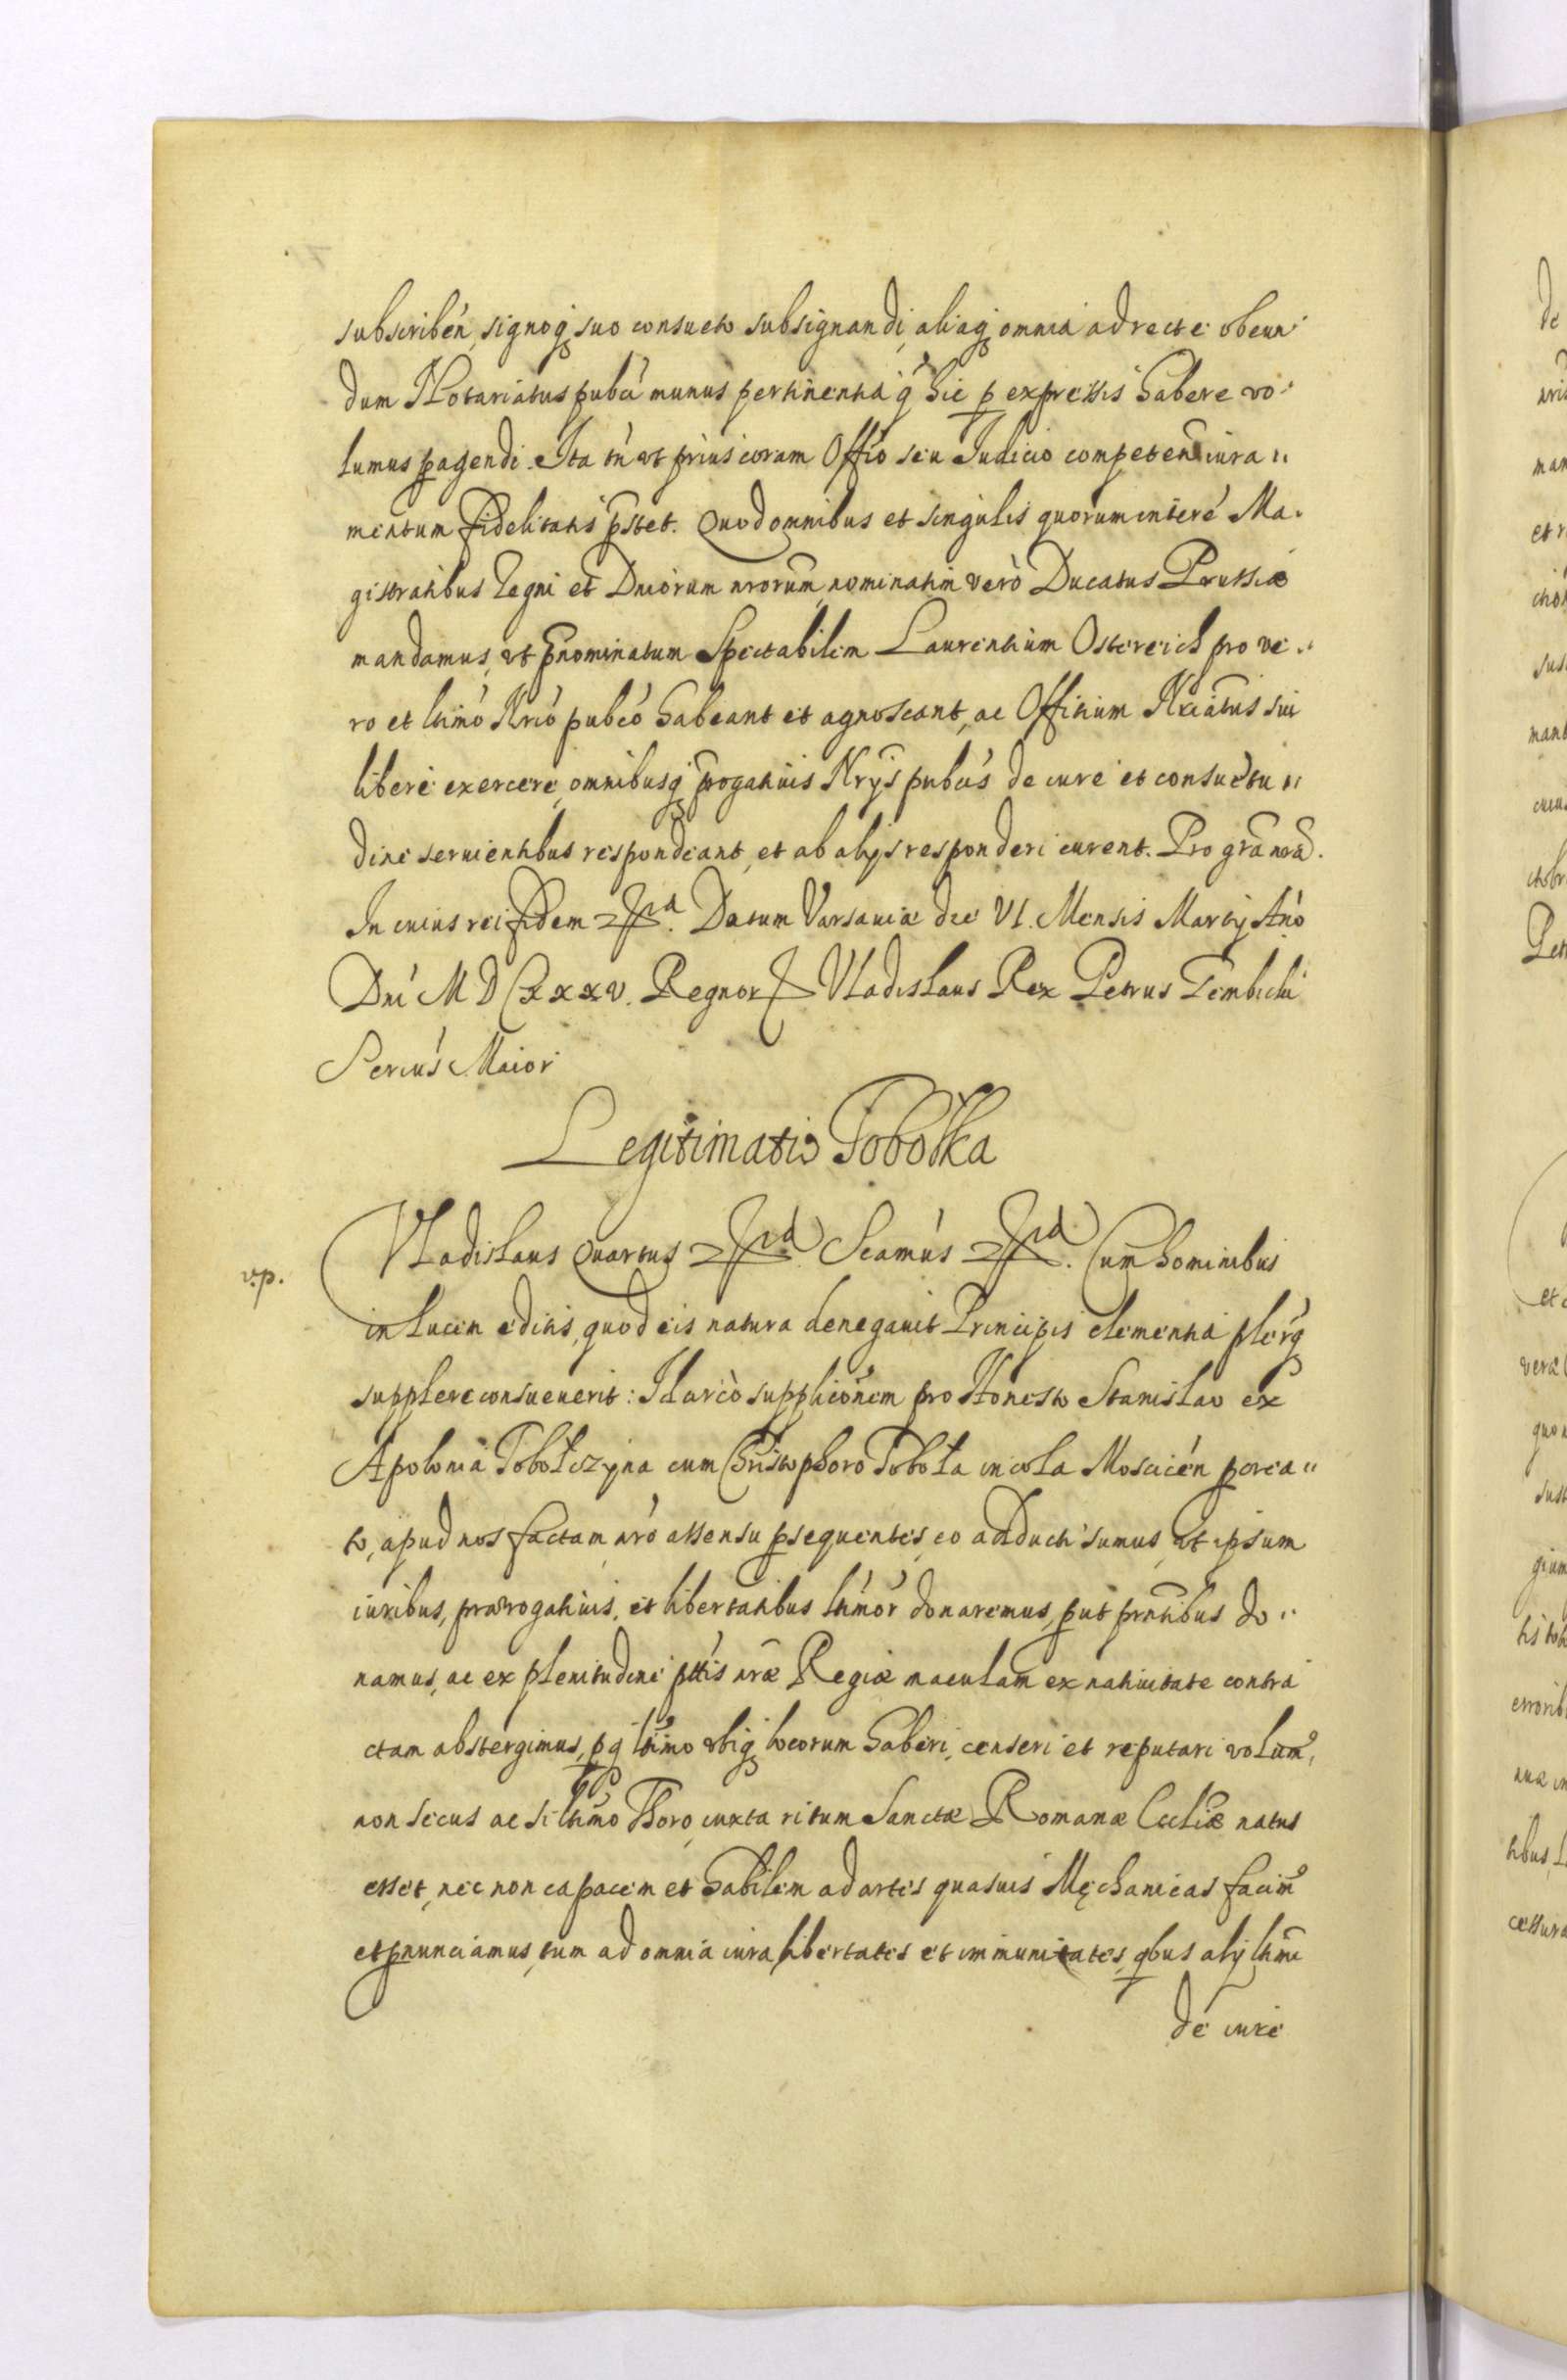 subscriben, signoq suo consueto subsignandi, aliaq omnia ad recte obeun
dum Notariatus pubci munus pertinentia q hic p expressis habere vo
lumus pagendi. Ita tn ut prius coram Offio seu Judicio competen iura
mentum fidelitatis pstet. Quod omnibus et singulis quorum intere Ma
gistratibus Regni et Dniorum nrorum, nominatim verò Ducatus Prussiæ
mandamus, ut pnominatum Spectabilem Laurentium Ostereich pro ve
ro et ltimo Nrio pubco habeant et agnoscant, ac Officium Nriatus sui
libere exercere, omnibusq progatiuis Nrijs pubcis de iure et consuetu
dine seruientibus respondeant, et ab alijs responderi curent. Pro gra nra.
In cuius rei fidem Datum Varsauiæ die VI. Mensis Martij Ano
Dni MDCXXXV. Regnor Vladislaus Rex Petrus Gembicki
Secrius Maior
Legitimatio Tobołka
v.p.
Vladislaus Quartus Scamus Cum hominibus
in lucem editis, quod eis natura denegauit Principis clementia plerq
supplere consueuerit: Id circò suppliconem pro Honesto Stanislao ex
Apolonia Tobołczyna cum Christophoro Toboła incola Moscicen porea
to, apud nos factam nro assensu psequentes, eo adducti sumus, ut ipsum
iuribus, prærogatiuis, et libertatibus ltimor donaremus, put pntibus do
namus, ac ex plenitudine pttis nræ Regiæ maculam ex natiuitate contra
ctam abstergimus, pq ltimo ubiq locorum haberi, censeri et reputari volum,
non secus ac si ltimo Thoro, iuxta ritum Sanctæ Romanæ Ecclia natus
esset, nec non capacem et habilem ad artes quasuis Mechanicas facim
et pnunciamus, tum ad omnia iura, libertates et immunitates, qbus alij ltimi
de iure